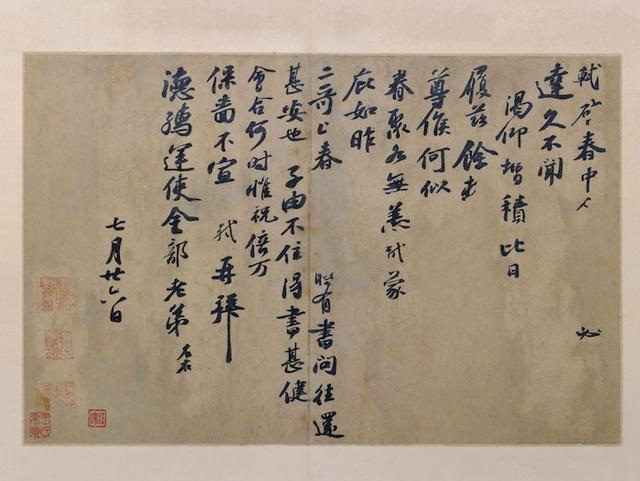 軾啓春中
必
達久不聞
渴仰增積比日
履茲餘
尊候何似
眷聚各無恙軾蒙
庇如昨
二哥上春
時有書問往還
甚安也子由不住得書甚健
會合何時惟祝倍万
保嗇不宣 軾再拜
德孺運使金部老弟左右
七月廿六日